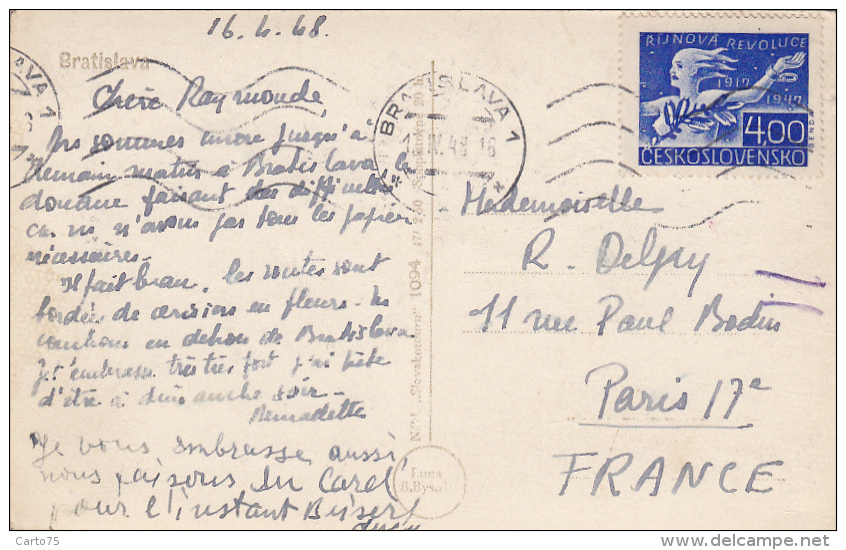 16.4.48.
Bratislava
Chère Raymonde,
Ns sommes encore jusqu'à
demain matin à Bratislava, la
douane faisant des difficultés
car ns n'avons pas tous les papiers
nécessaires.
Il fait beau, les routes sont
bordées de cerisiers en fleurs. Ns
couchons en dehors de Bratislava
Je t'embrasse très très fort j'ai hâte
d'être à dimanche soir.
Bernadette
Je vous embrasse aussi
nous faisons du
pour l'instant
BRATISLAVA 1
ŘIJNOVÁ REVOLUCE
1917
1947
4,00
ČESKOSLOVENSKO
Mademoiselle
R. Delpay
11 rue Paul Bodin
Paris 17e
FRANCE
"Slovakontura" 1094
Carto75